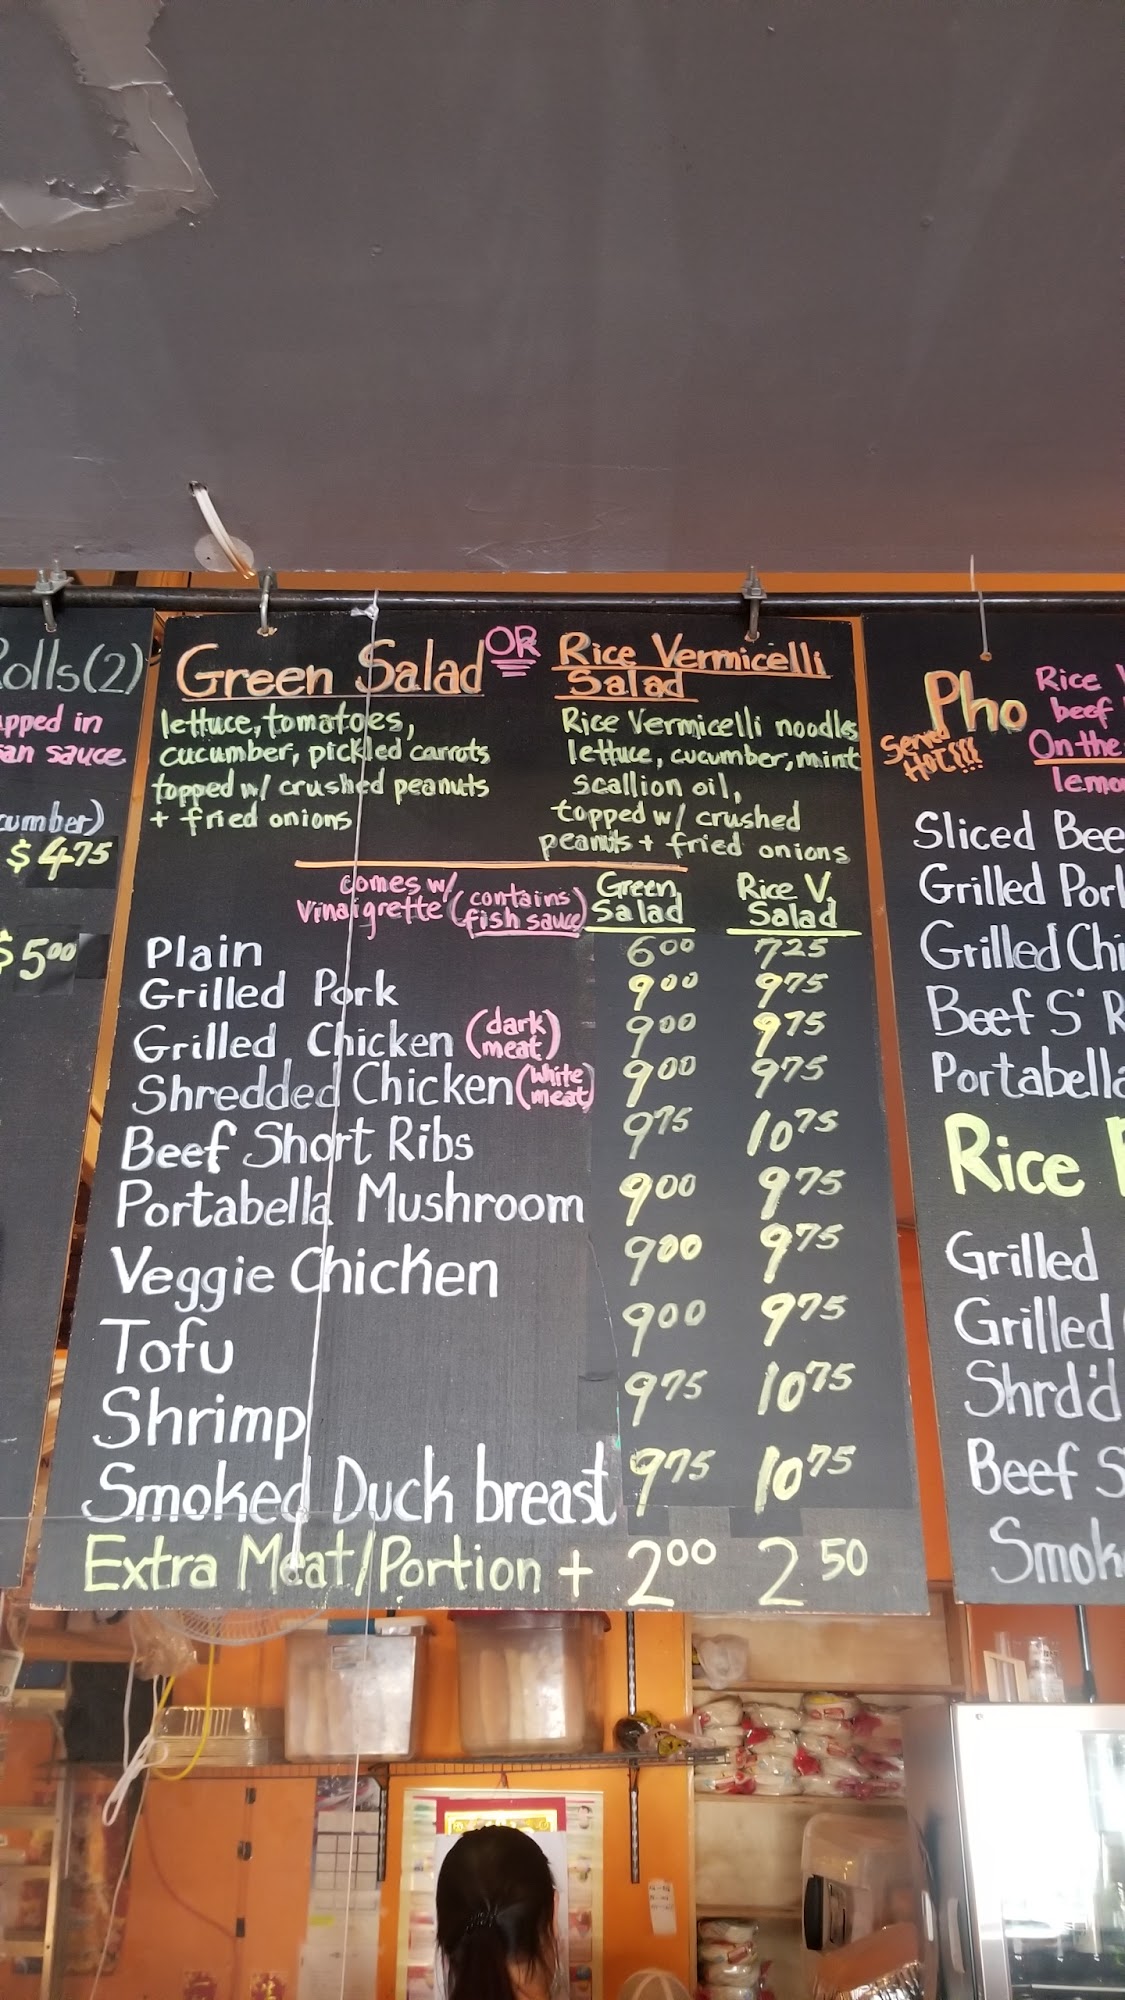 Rolls(2)
apped in
san sauce
cumber)
$ 4.75
$ 5.00
Green Salad OR Rice Vermicelli
Salad
lettuce, tomatoes,
cucumber, pickled carrots
topped w/ crushed peanuts
+ fried onions
Rice Vermicelli noodles
lettuce, cucumber, mint
scallion oil,
topped w/ crushed
peanuts + fried onions
comes w/
Vinaigrette (contains
fish sauce)
Green
Salad
Rice V.
Salad
Plain 6.00 7.25
Grilled Pork 9.00 9.75
Grilled Chicken (dark meat) 9.00 9.75
Shredded Chicken (white meat) 9.00 9.75
Beef Short Ribs 9.75 10.75
Portabella Mushroom 9.00 9.75
Veggie Chicken 9.00 9.75
Tofu 9.00 9.75
Shrimp 9.75 10.75
Smoked Duck breast 9.75 10.75
Extra Meat/Portion + 2.00 2.50
Pho
Served
HOT!!!
Rice V
beef
On the
lemo
Sliced Bee
Grilled Pork
Grilled Chi
Beef S' R
Portabella
Rice
Grilled
Grilled
Shrd'd
Beef S
Smok